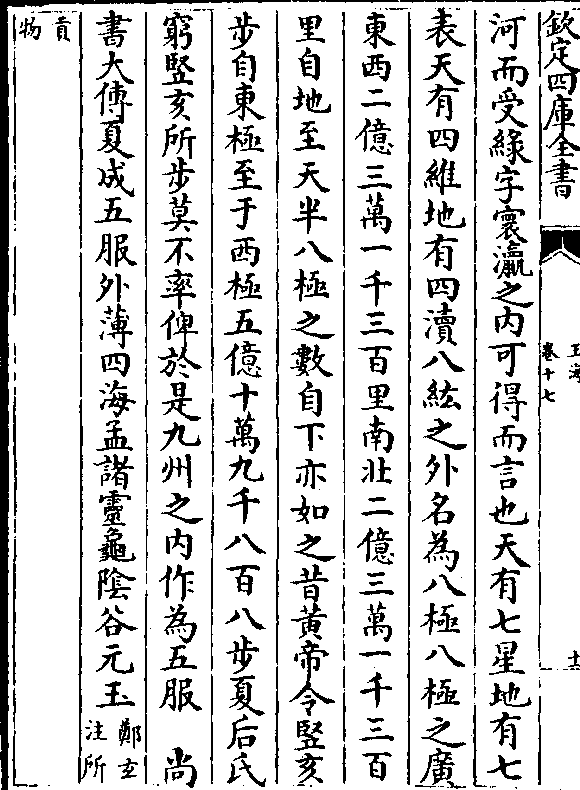 欽定四庫全書
玉海
卷十七
十
河而受緑字寰瀛之内可得而言也天有七星地有七
表天有四維地有四瀆八紘之外名為八極八極之廣
東西二億三萬一千三百里南北二億三萬一千三百
里自地至天半八極之數自下亦如之昔黄帝令豎亥
步自東極至于西極五億十萬九千八百八步夏后氏
窮豎亥所步莫不率俾於是九州之内作為五服 尚
書大傳夏成五服外薄四海孟諸靈龜陰谷元玉鄭玄注所
貢物